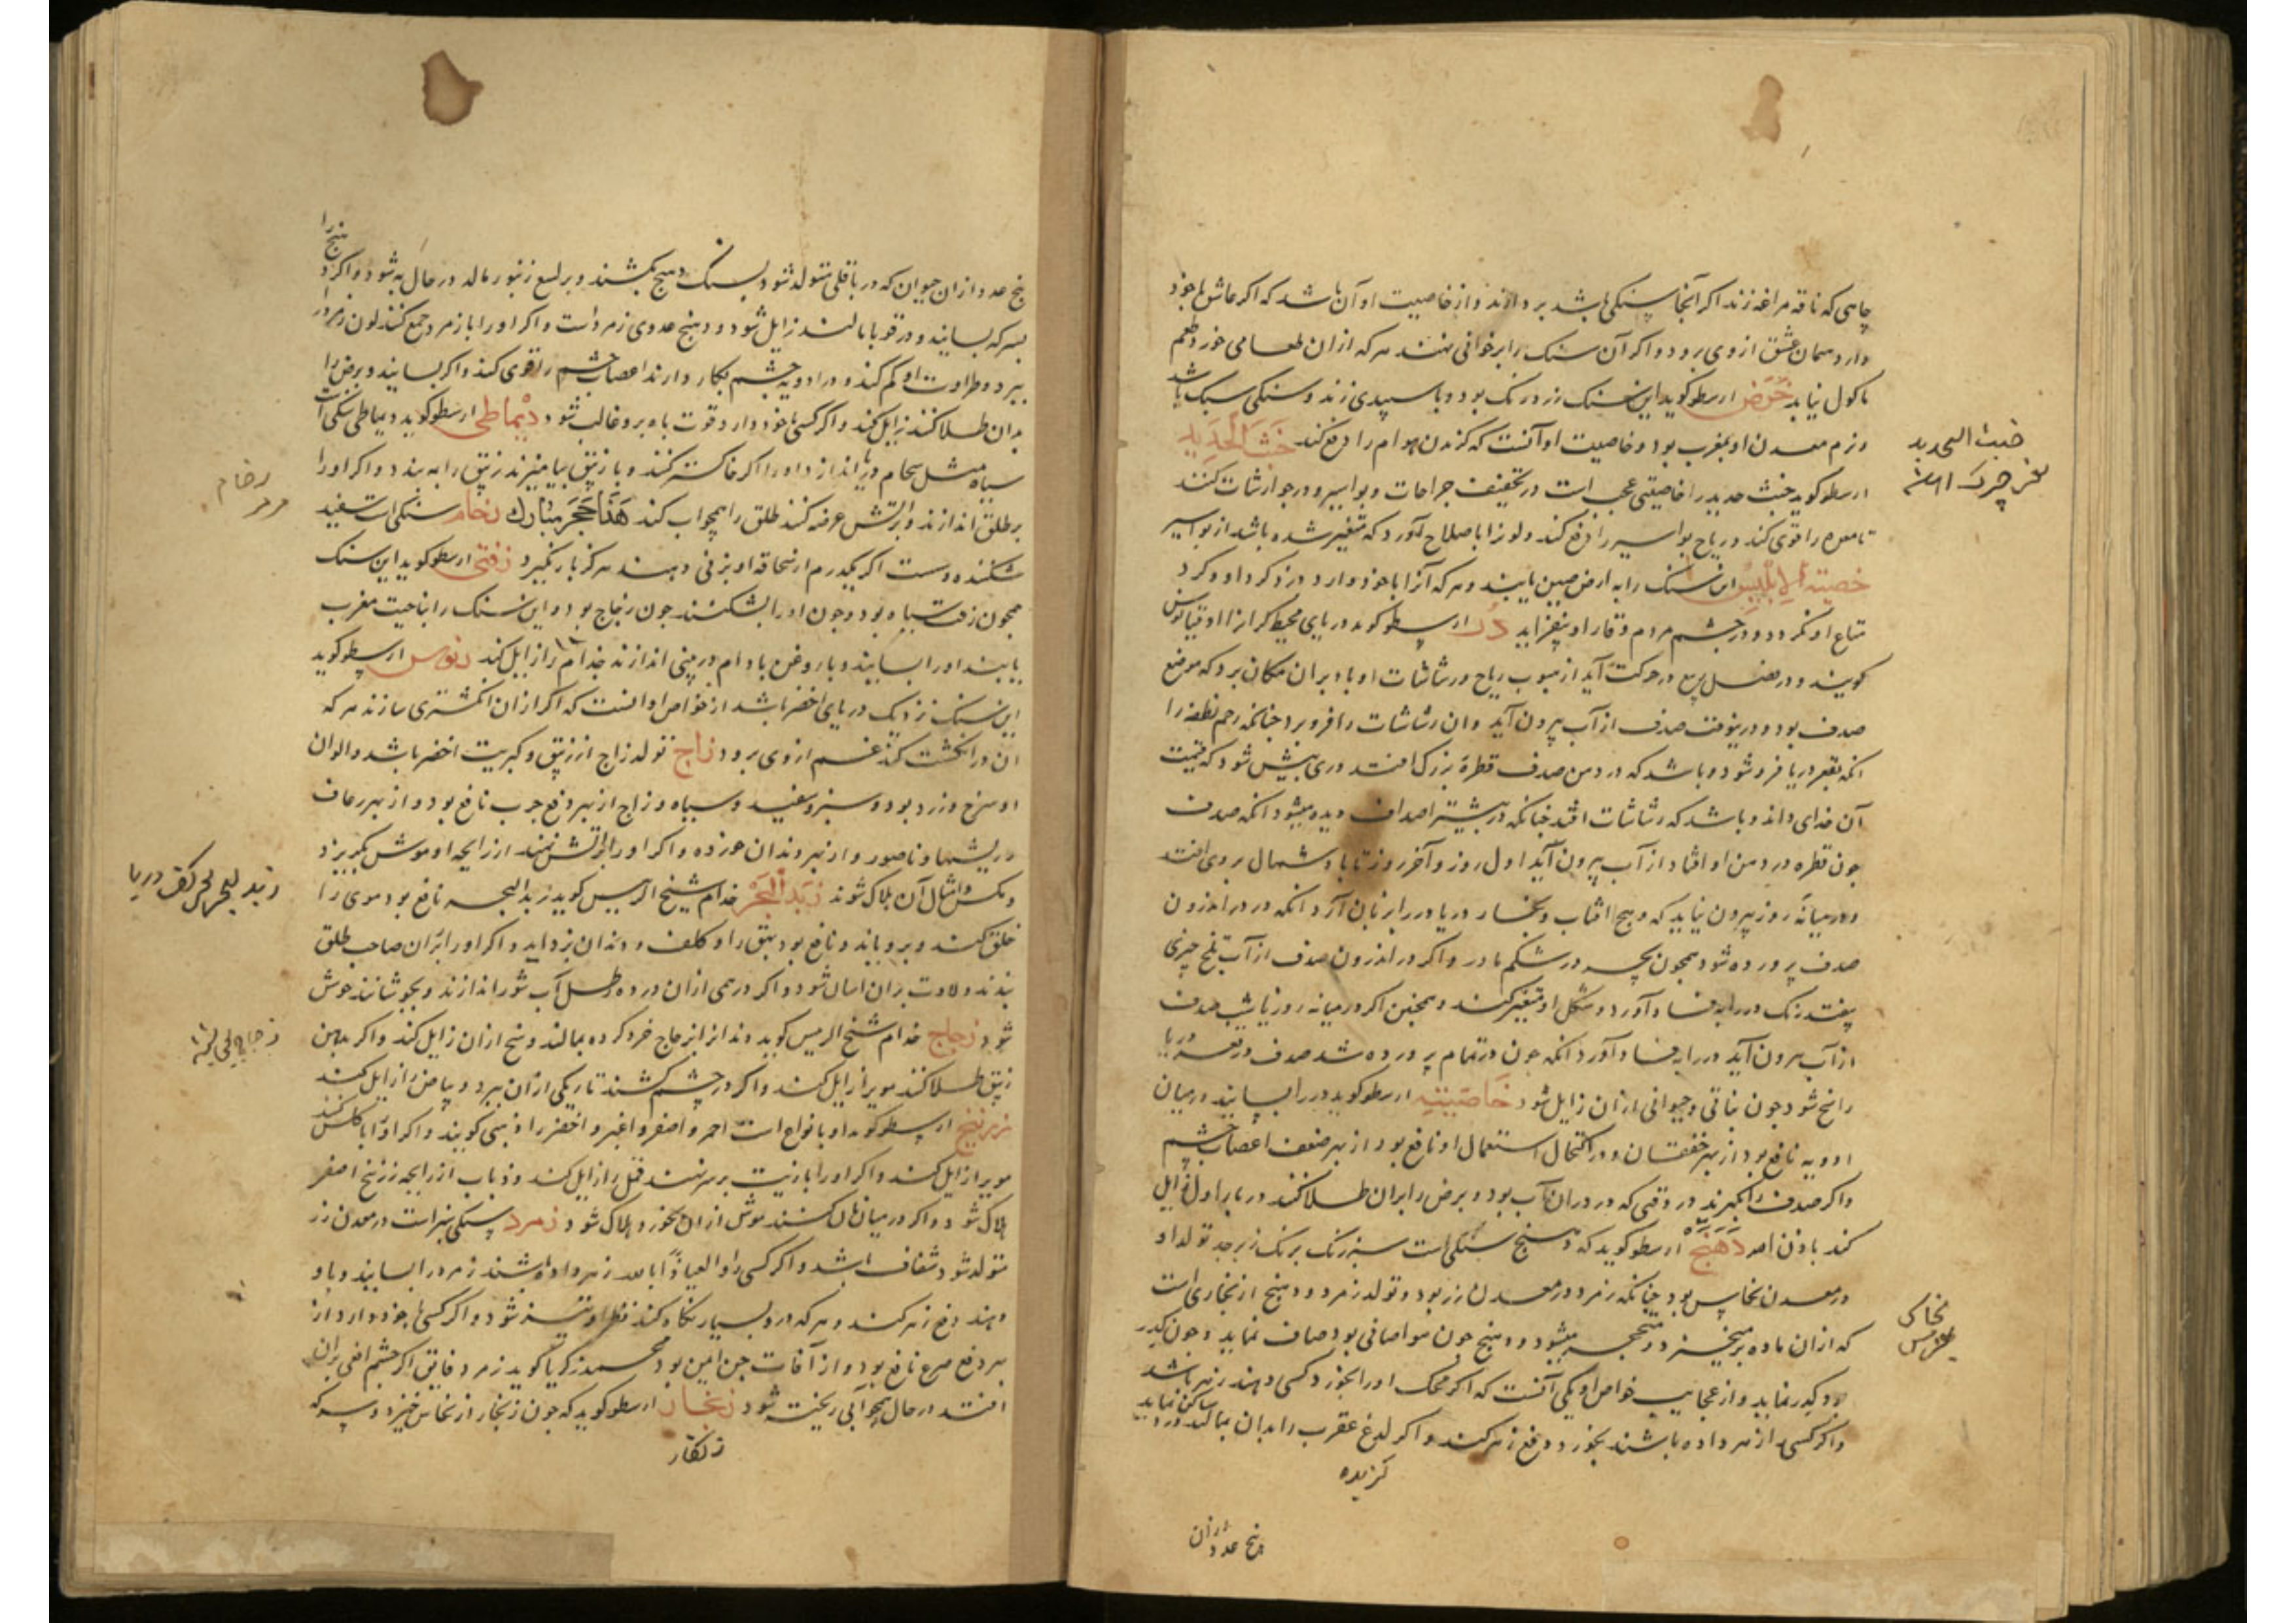 چاهی که ناقه مراغه زند اکر آنجا سنکی باشد بردارند و از خاصیت او آن باشد که اکر عاشق با خود
دارد سمان عشق از وی برود و اکر آن سنک را بر خوانی نهند هرکه از ان طعامی خورد طعم
ماکول نیابد خوض ارسطو کوید این سنک زرد رنک بود و با سپیدی زند و سنکی سبک باشد
و نرم معدن او بمغرب بود و خاصیت او آنست که کزندن هوام را دفع کند خبث الحدید
ارسطو کوید خبث حدید را خاصیتی عجب است در تخفیف جراحات و بواسیر و در جوارشات کنند
تا معده را قوی کند و ریاح بواسیر را دفع کند و لون را باصلاح آورد که متغیر شده باشد از بواسیر
خصیة الابلیس این سنک را به ارض صین یابند و هرکه آنرا با خود دارد دزد کرد او و کرد
متاع او نکردد و در چشم مردم وقار او بیفزاید در ارسطو کوید دریای محیط که انرا اوقیانوس
کویند و در فصل ربیع در حرکت آید از هبوب ریاح و رشاشات او باد بران مکان برد که موضع
صدف بود و در ینوقت صدف از آب بیرون آید و ان رشاشات را فرو برد چنانکه رحم نطفه را
انکه بقعر دریا فرو شود و باشد که در دهن صدف قطره بزرک افتد دری بیش شود که قیمت
آن خدای داند و باشد که رشاشات افتد چنانکه در بیشتر اصداف دیده میشود انکه صدف
چون قطره در دهن او افتاد از آب بیرون آید اول روز و آخر روز تا باد شمال بر وی افتد
و در میانه روز بیرون نیاید که وهج افتاب و بخار دریا در را بزیان آرد انکه در در اندرون
صدف پرورده شود همچون بچه در شکم مادر و اکر در اندرون صدف از آب تلخ چیزی
بیفتد رنک در را به فساد آورد و شکل او متغیر کند و همچنین اکر در میانه روز یا شب صدف
از آب بیرون آید در را به فساد آورد انکه چون در تمام پرورده شد صدف در قعر دریا
راسخ شود چون نباتی و حیوانی از ان زایل شود خاصیته ارسطو کوید در را بسایند در میان
ادویه نافع بود از بهر خفقان و در اکتحال استعمال او نافع بود از بهر ضعف اعصاب چشم
و اکر صدف را بکیرند در وقتی که در دران آب بود و برص را بران طلا کنند در بار اول زایل
کند باذن الله دهنج ارسطو کوید که دهنج سنکی است سبز رنک برنک زبرجد تولد او
در معدن نحاس بود چنانکه زمرد در معدن زر بود و تولد زمرد و دهنج از بخاری است
که از ان ماده برخیزد و متحجر میشود و دهنج چون هوا صافی بود صاف نماید و چون کدر
بود کدر نماید و از عجایب خواص او یکی آنست که اکر محک او را بخورد کسی دهند زهر باشد
و اکر کسی را زهر داده باشند بخورد دفع زهر کند و اکر لدغ عقرب را بدان بمالند درد ساکن نماید
کزیده
پنج عدد از ان
خبث الحدید
یعنی چرک آهن
نحاس
مس
پنج عدد از ان حیوان که در باقلی متولد شود بسنک دهنج بکشند و بر لسع زنبور مالد در حال به شود و اکر دهنج را
بسرکه بسایند و در قوبا بمالند زایل شود و دهنج عدوی زمرد است و اکر او را با زمرد جمع کنند لون زمرد را
ببرد و طراوت او کم کند و در ادویه چشم بکار دارند اعصاب چشم را قوی کند و اکر بسایند و برص را
بدان طلا کنند زایل کند و اکر کسی با خود دارد قوت باه برو غالب شود دیماطی ارسطو کوید دیماطی سنکی است
سیاه مثل سحام دریا اندازد او را اکر خاکستر کنند و با زیبق بیامیزند زیبق را به بندد و اکر او را
بر طلق اندازند و بر آتش عرضه کنند طلق را همچو آب کند هذا حجر مبارک رخام سنکی است سفید
شکننده و سست اکر یکدرم از سحاقه او بزنی دهند هرکز بار نکیرد زفتی ارسطو کوید این سنک
همچون زفت سیاه بود و چون او را بشکنند چون زجاج بود و این سنک را بناحیت مغرب
یابند او را بسایند و با روغن بادام در بینی اندازند جذام را زایل کند زنوس ارسطو کوید
این سنک نزدیک دریای اخضر باشد از خواص او انست که اکر از ان انکشتری سازند هرکه
ان در انکشت کند غم از وی برود زاج تولد زاج از زیبق و کبریت اخضر باشد و الوان
او سرخ و زرد بود و سبز و سفید و سیاه و زاج از بهر دفع جرب نافع بود و از بهر رعاف
و ریشها و ناصور و از بهر دندان خورده و اکر او را بر آتش نهند از رایحه او موش بکریزد
و مکس و امثال آن هلاک شوند زبد البحر خدام شیخ الرییس کوید زبد البحر نافع بود موی را
حلق کند و برویاند و نافع بود بهق را و کلف و دندان بزداید و اکر او را بران صاحب طلق
بندند ولادت بران اسان شود و اکر درمی ازان در ده رطل آب شور اندازند و بجوشانند خوش
شود زجاج خدام شیخ الرییس کوید دندانرا زجاج خرد کرده بمالند وسخ از ان زایل کند و اکر بدهن
زیبق طلا کنند مویرا زایل کند و اکر در چشم کشند تاریکی از ان ببرد و بیاض را زایل کند
زرنیخ ارسطو کوید او بانواع است احمر و اصفر و اغبر و اخضر را ذهبی کویند و اکر او را با کلس کنند
مویرا زایل کند و اکر او را با زیت بر سر نهند قمل را زایل کند و ذباب از رایحه زرنیخ اصفر
هلاک شود و اکر در میان نان کنند موش از ان بخورد هلاک شود زمرد سنکی سبز است در معدن زر
متولد شود شفاف باشد و اکر کسی را والعیاذ بالله زهر داده باشند زمرد را بسایند و باو
دهند دفع زهر کند و هرکه در او بسیار نکاه کند نظر او تیز شود و اکر کسی با خود دارد از
بهر دفع صرع نافع بود و از آفات جن امین بود محمد زکریا کوید زمرد فایق اکر چشم افعی بران
افتد در حال همچو آبی ریخته شود زنجار ارسطو کوید که چون زنجار از نحاس خیزد و سرکه
زنکار
رخام
مرمر
زبد البحر یعنی کف دریا